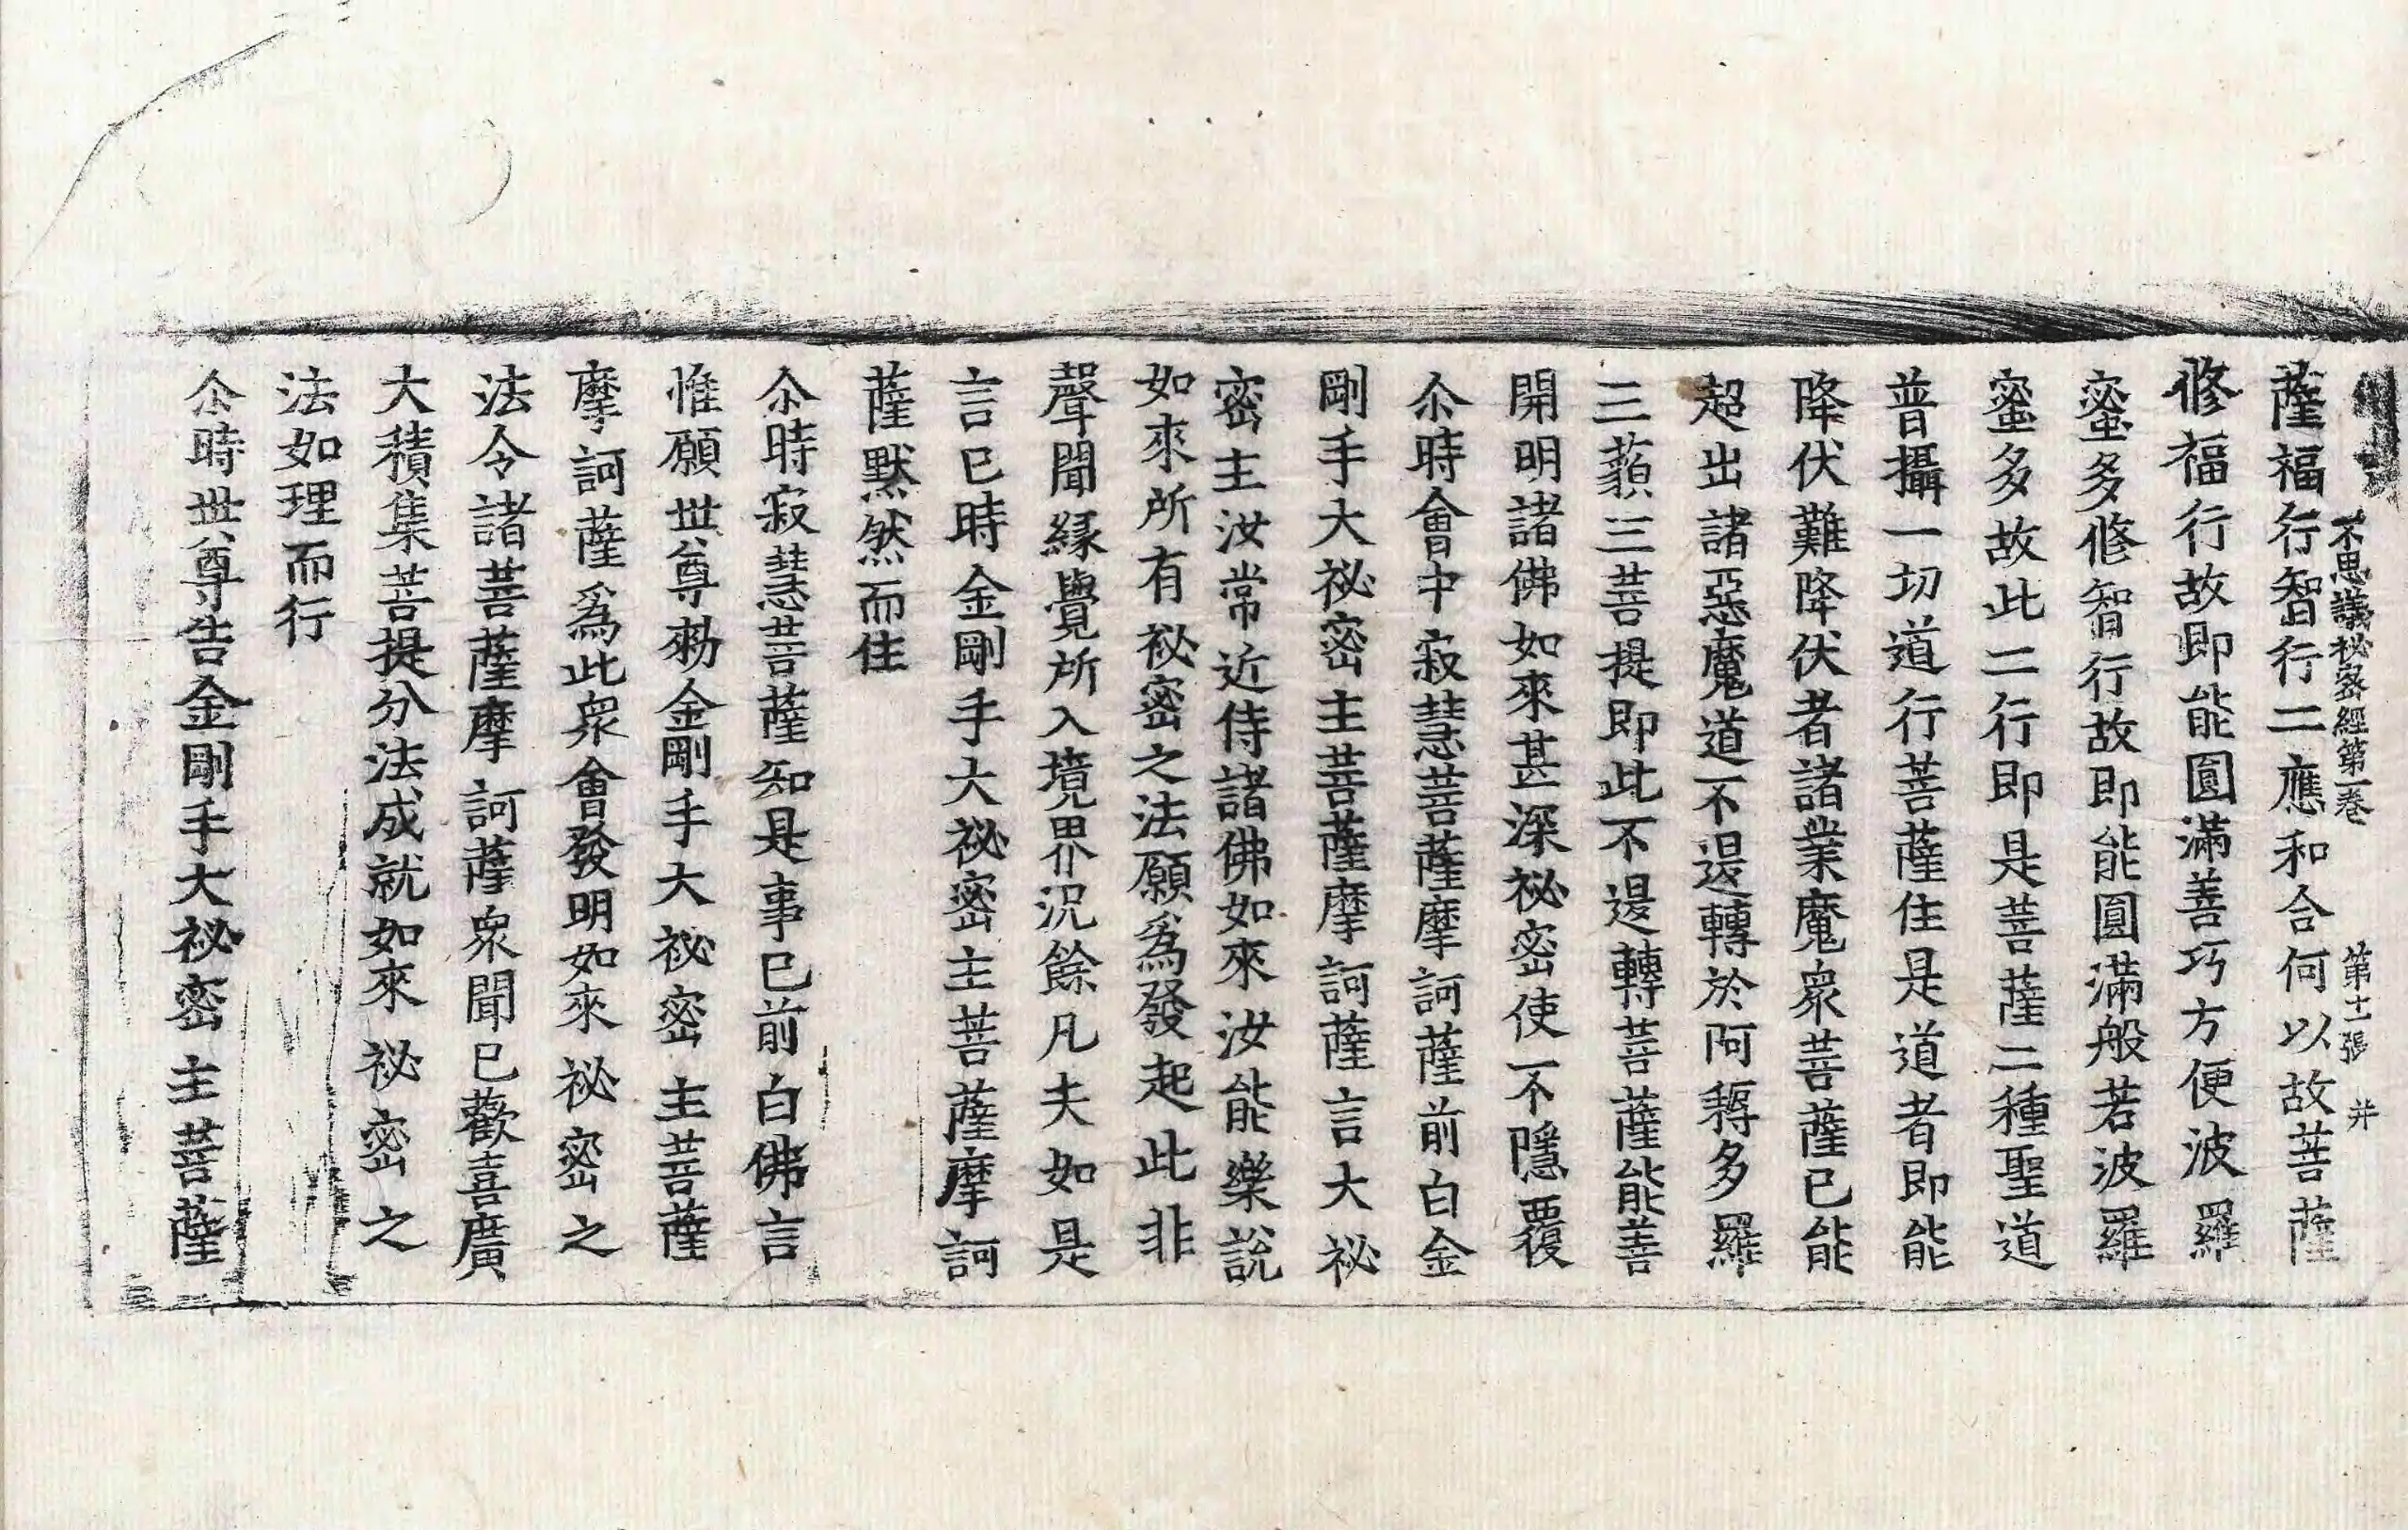 不思議秘密經第一卷 第十一張 并
薩福行智行二應和合何以故菩薩
修福行故即能圓滿善巧方便波羅
蜜多修智行故即能圓滿般若波羅
蜜多故此二行即是菩薩二種聖道
普攝一切道行菩薩住是道者即能
降伏難降伏者諸業魔衆菩薩已能
超出諸惡魔道不退轉於阿耨多羅
三藐三菩提即此不退轉菩薩能善
開明諸佛如來甚深祕密使不隱覆
尒時會中寂慧菩薩摩訶薩前白金
剛手大祕密主菩薩摩訶薩言大祕
密主汝常近侍諸佛如來汝能樂說
如來所有祕密之法願爲發起此非
聲聞緣覺所入境界況餘凡夫如是
言已時金剛手大祕密主菩薩摩訶
薩默然而住
尒時寂慧菩薩知是事已前白佛言
惟願世尊勑金剛手大祕密主菩薩
摩訶薩爲此衆會發明如來祕密之
法令諸菩薩摩訶薩衆聞已歡喜廣
大積集菩提分法成就如來祕密之
法如理而行
尒時世尊告金剛手大祕密主菩薩